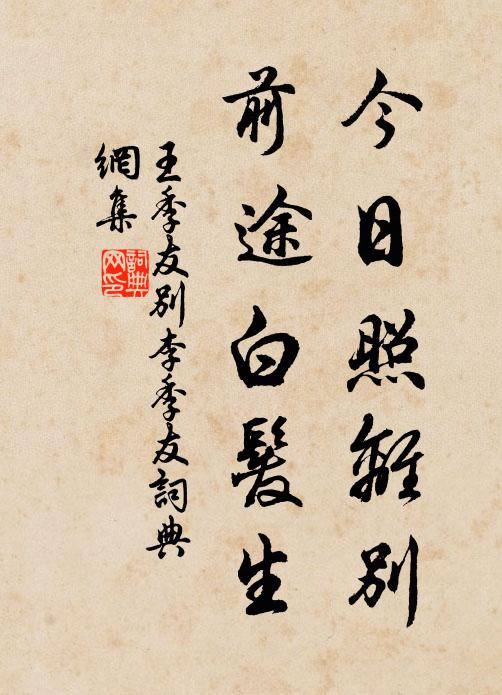 今日照離別
前途白髮生
王季友別李季友詞典
網集
詞典
网印